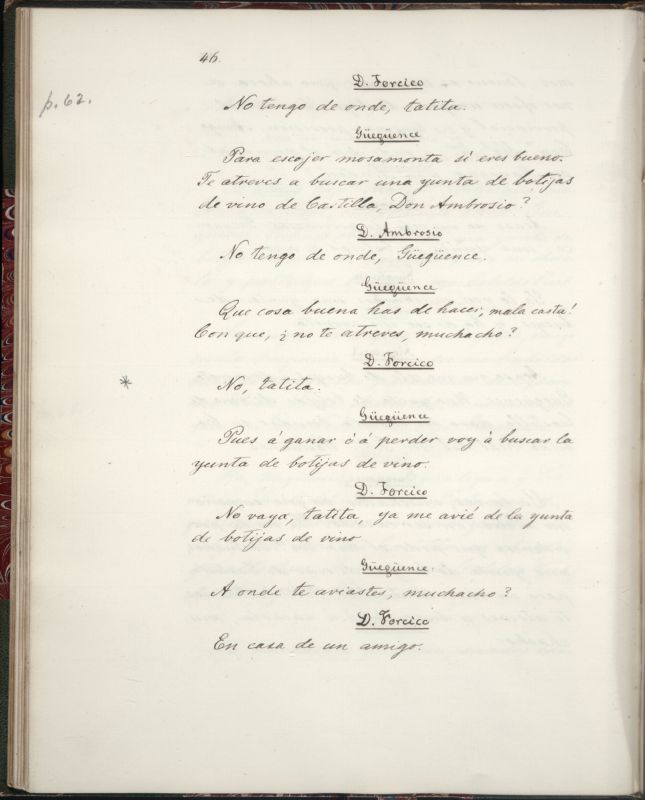 46.
p. 62.
D. Forcico
No tengo de onde, tatita.
Güegüence
Para escojer mosamonta sí eres bueno.
Te atreves a buscar una yunta de botijas
de vino de Castilla, Don Ambrosio?
D. Ambrosio
No tengo de onde, Güegüence.
Güegüence
Que cosa buena has de hacer, mala casta!
Con que, ¿no te atreves, muchacho?
D. Forcico
* No, tatita.
Güegüence
Pues á ganar ó á perder voy á buscar la
yunta de botijas de vino.
D. Forcico
No vaya, tatita, ya me avié de la yunta
de botijas de vino
Güegüence
A onde te aviastes, muchacho?
D. Forcico
En casa de un amigo.